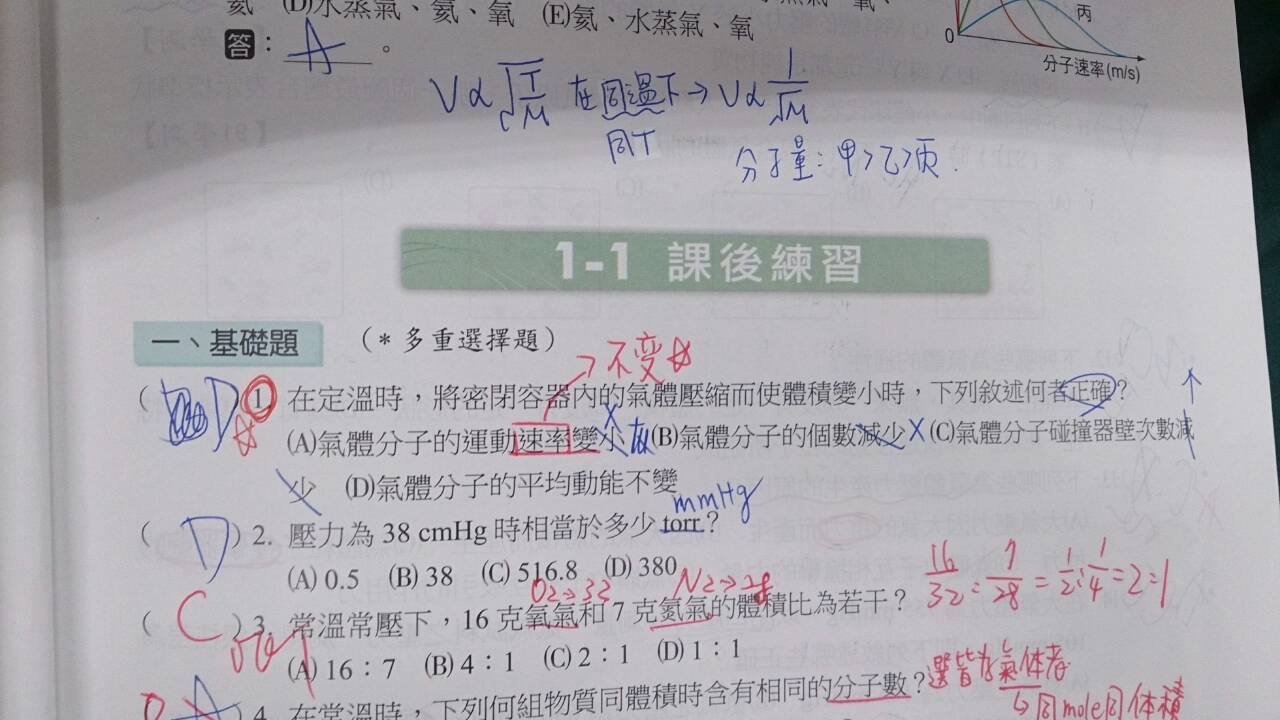 氦 (D)水蒸氣、氦、氧 (E)氦、水蒸氣、氧
答：A。
0 丙
分子速率(m/s)
V∝√(T/M) 在同溫下→V∝1/√M
同T
分子量：甲>乙>丙.
1-1 課後練習
一、基礎題 (*多重選擇題)
→不变
( D ) 1. 在定溫時，將密閉容器內的氣體壓縮而使體積變小時，下列敘述何者正確？
(A)氣體分子的運動速率變小 (B)氣體分子的個數減少 X (C)氣體分子碰撞器壁次數減
少 (D)氣體分子的平均動能不變
mmHg
( D ) 2. 壓力為 38 cmHg 時相當於多少 torr？
(A) 0.5 (B) 38 (C) 516.8 (D) 380
O2→32 N2→28
16/32：7/28＝1/2：1/4＝2：1
( C ) 3. 常溫常壓下，16 克氧氣和 7 克氮氣的體積比為若干？
(A) 16：7 (B) 4：1 (C) 2：1 (D) 1：1
選皆為氣体者
A 4. 在常溫時，下列何組物質同體積時含有相同的分子數？
↳同mole同体積